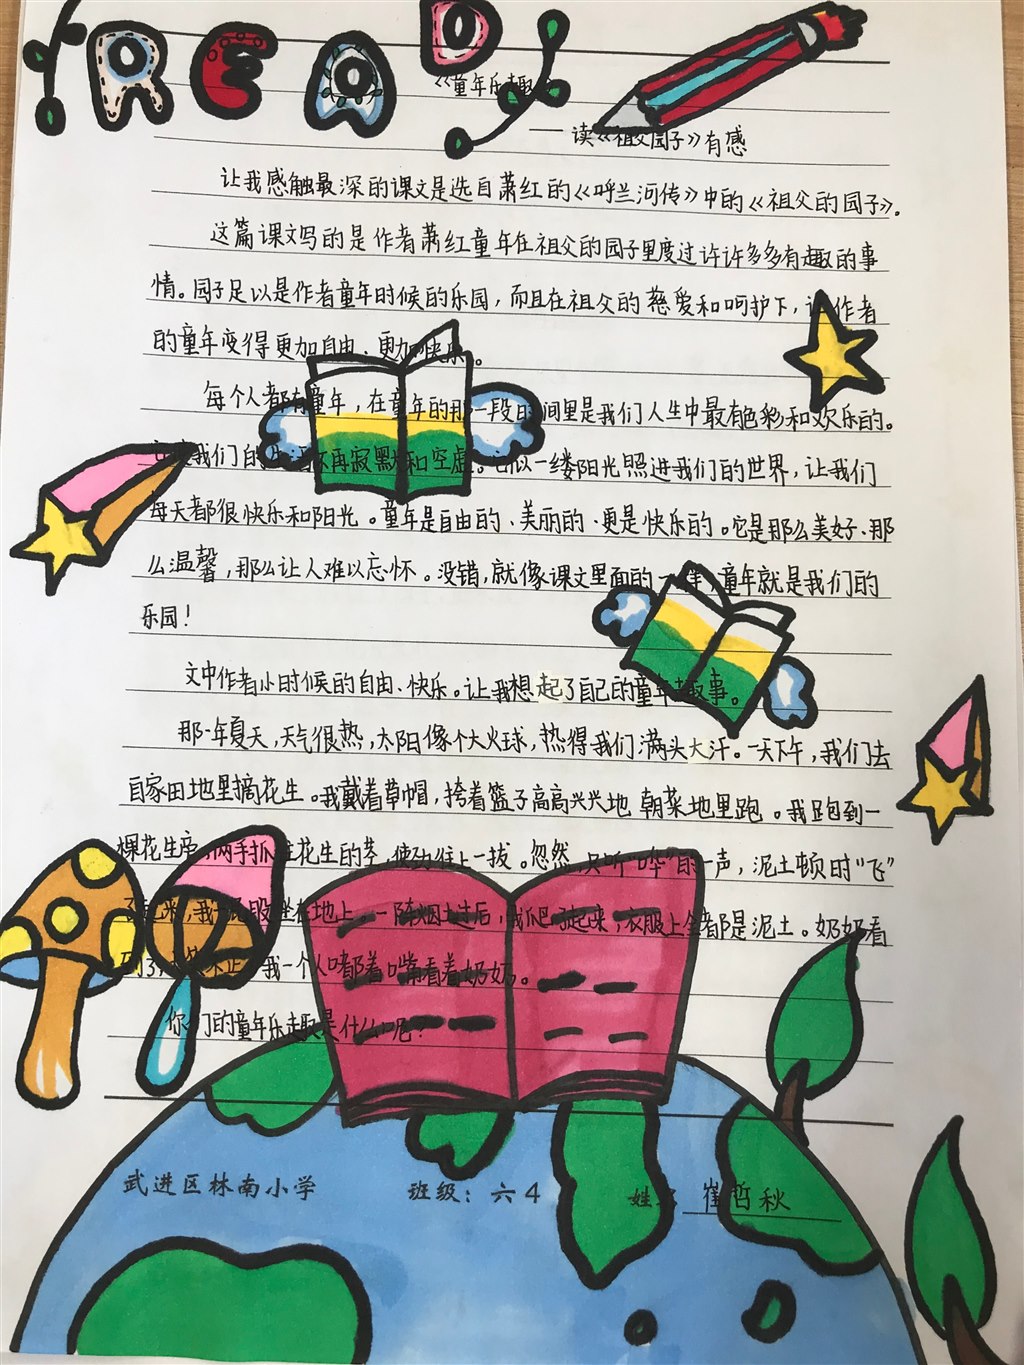 READ
《童年乐趣
——读《祖父园子》有感
让我感触最深的课文是选自萧红的《呼兰河传》中的《祖父的园子》。
这篇课文写的是作者萧红童年在祖父的园子里度过许许多多有趣的事
情。园子足以是作者童年时候的乐园,而且在祖父的慈爱和呵护下,让作者
的童年变得更加自由、更加快乐。
每个人都有童年,在童年的那一段时间里是我们人生中最有色彩和欢乐的。
我们的生活不再寂寞和空虚。它似一缕阳光照进我们的世界,让我们
每天都很快乐和阳光。童年是自由的、美丽的、更是快乐的。它是那么美好、那
么温馨,那么让人难以忘怀。没错,就像课文里面的一样,童年就是我们的
乐园!
文中作者小时候的自由、快乐。让我想起了自己的童年趣事。
那一年夏天,天气很热,太阳像个大火球,热得我们满头大汗。一天下午,我们去
自家田地里摘花生。我戴着草帽,挎着篮子高高兴兴地朝菜地里跑。我跑到一
棵花生旁,两手抓住花生的茎,使劲往上一拔。忽然,只听“哗”的一声,泥土顿时“飞”
了起来,我一屁股坐在地上。一阵烟土过后,我爬了起来,衣服上全都是泥土。奶奶看
到了,我一个人嘟着嘴看着奶奶。
你们的童年乐趣是什么呢?
武进区林南小学 班级:六4 姓 崔哲秋